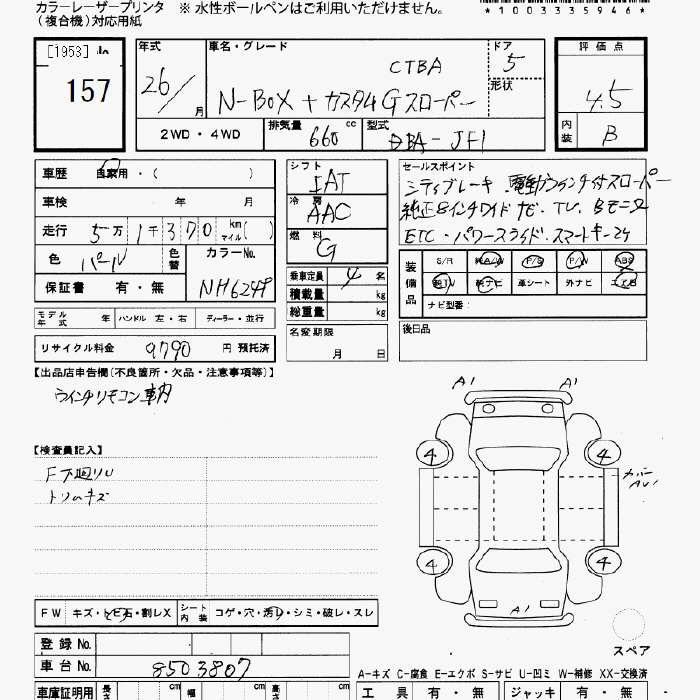 カラーレーザープリンタ ※ 水性ボールペンはご利用いただけません。
(複合機)対応用紙
*1003335946*
[1953]
157
年式
26/
月
車名・グレード
CTBA
N-BOX + カスタムG スローパー
ドア
5
形状
評価点
4.5
内装
B
2WD・4WD
排気量
660
cc
型式
DBA-JF1
車歴 自家用・( )
車検 年 月
走行 5万 1千 3 7 0 km マイル( )
色 パール
色替
カラーNo.
NH624P
保証書 有・無
モデル年式 年 ハンドル 左・右 ディーラー・並行
リサイクル料金 9790 円 預託済
シフト
IAT
冷房
AAC
燃料
G
乗車定員 4 名
積載量 kg
総重量 kg
名変期限
月 日
セールスポイント
シティブレーキ・電動ウインチ付スローパー
純正8インチワイドナビ・TV・Bモニタ
ETC・パワースライド・スマートキー2ケ
装備品
S/R 純A/W P/S P/W ABS
純TV 純ナビ 革シート 外ナビ エアB
ナビ型番:
後日品
【出品店申告欄(不良箇所・欠品・注意事項等)】
ウインチリモコン車内
【検査員記入】
F下廻りU
トリムキズ
A1 A1
4 4
カバー
AU1
4 4
A1
スペア
FW キズ・トビ石・割レX シート内装 コゲ・穴・汚レ・シミ・破レ・スレ
登録No.
車台No. 8503807
車庫証明用 長さ cm 幅 cm 高さ cm
A-キズ C-腐食 E-エクボ S-サビ U-凹ミ W-補修 XX-交換済
工具 有・無 ジャッキ 有・無